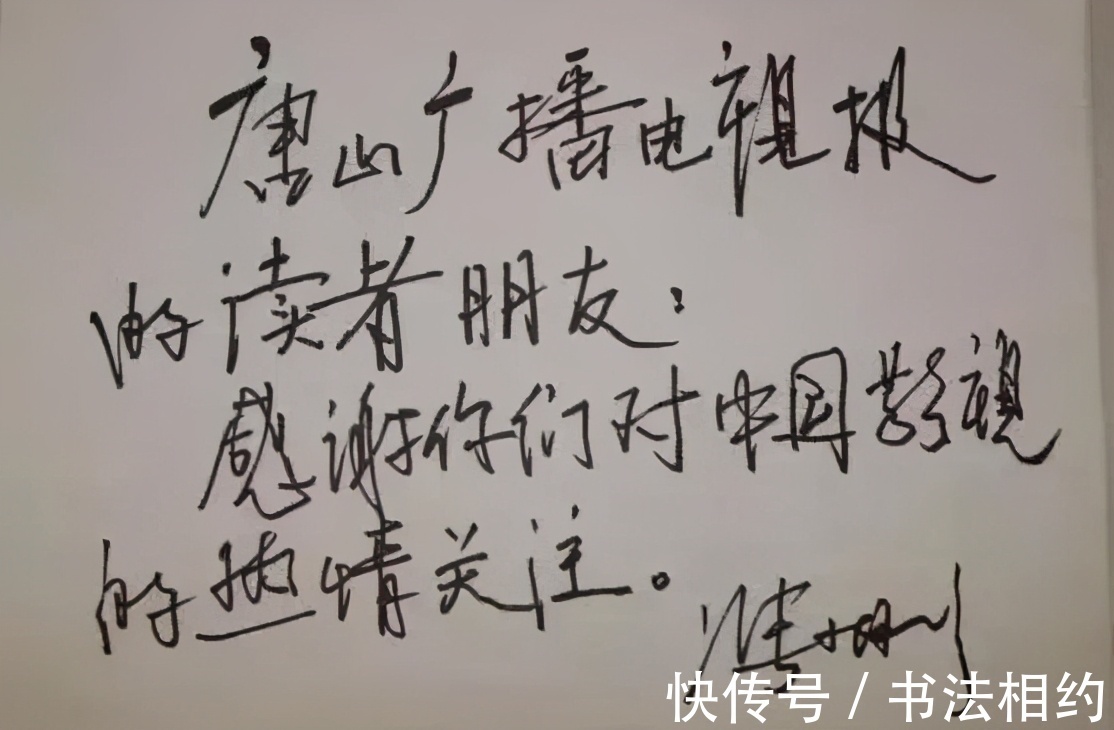 唐山广播电视报
的读者朋友：
感谢你们对中国影视
的热情关注。
快传号 / 书法相约